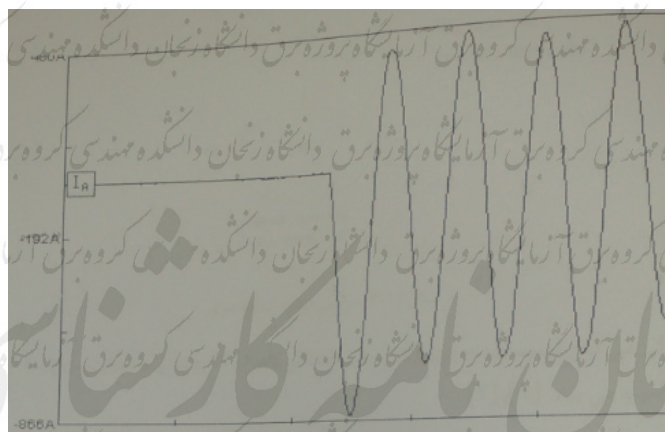 دانشکده مهندسی گروه برق آزمایشگاه پروژه برق دانشگاه زنجان دانشکده مهندسی
مهندسی گروه برق آزمایشگاه پروژه برق دانشگاه زنجان دانشکده مهندسی گروه برق
IA
-192A
گروه برق آزمایشگاه پروژه برق دانشگاه زنجان دانشکده مهندسی گروه برق
برق آزمایشگاه پروژه برق دانشگاه زنجان دانشکده مهندسی گروه برق آزمایشگاه
نامه
-866A